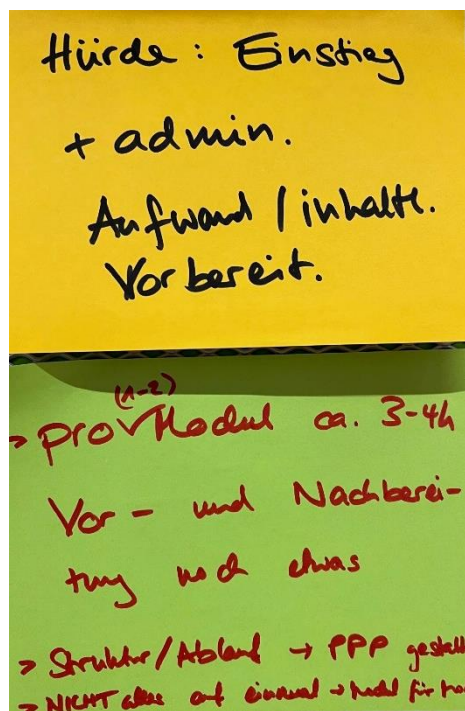 Hürde : Einstieg
+ admin.
Aufwand / inhaltl.
Vorbereit.
(1-2)
> pro Modul ca. 3-4h
Vor- und Nachberei-
tung noch etwas
> Struktur/Ablauf → PPP gestalt
> NICHT alles auf einmal → Modul für